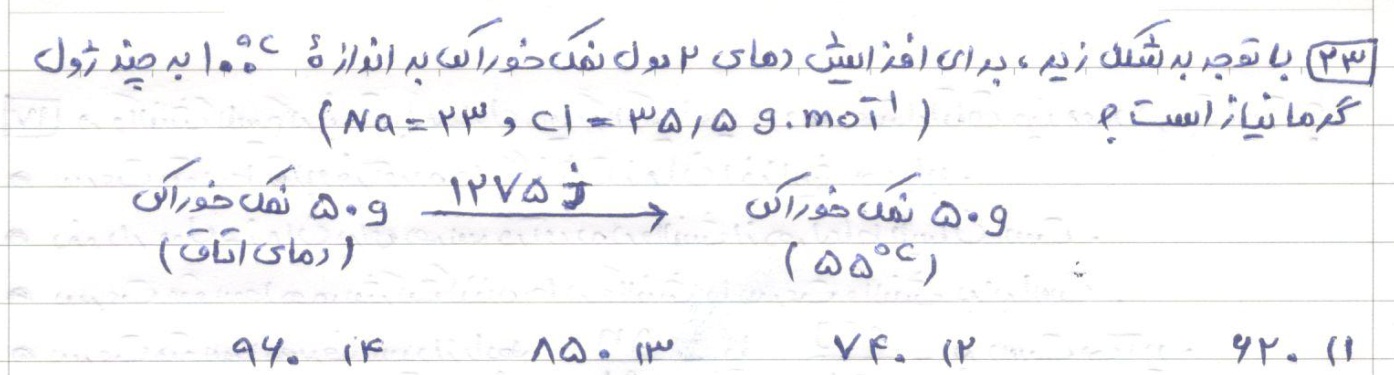 ۲۳) با توجه به شکل زیر، برای افزایش دمای ۲ مول نمک خوراکی به اندازهٔ ۱۰۰°C به چند ژول
گرما نیاز است؟ (Na = ۲۳ , Cl = ۳۵,۵ g.mol⁻¹)
۵۰g نمک خوراکی ۱۲۷۵ J → ۵۰g نمک خوراکی
(دمای اتاق) (۵۵°C)
۱) ۶۲۰ ۲) ۷۴۰ ۳) ۸۵۰ ۴) ۹۶۰